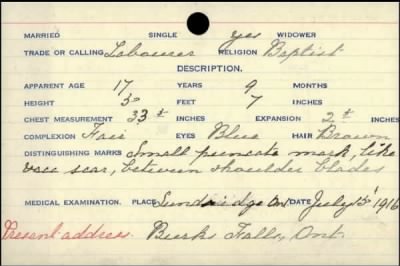 MARRIED SINGLE yes WIDOWER
TRADE OR CALLING Labourer RELIGION Baptist
DESCRIPTION.
APPARENT AGE 17 YEARS 9 MONTHS
HEIGHT 5 FEET 7 INCHES
CHEST MEASUREMENT 33 INCHES EXPANSION 2 INCHES
COMPLEXION Fair EYES Blue HAIR Brown
DISTINGUISHING MARKS Small puncate mark, like
vacc scar, between shoulder blades
MEDICAL EXAMINATION. PLACE Sundridge Ont DATE July 15 1916
Present address. Burks Falls, Ont.